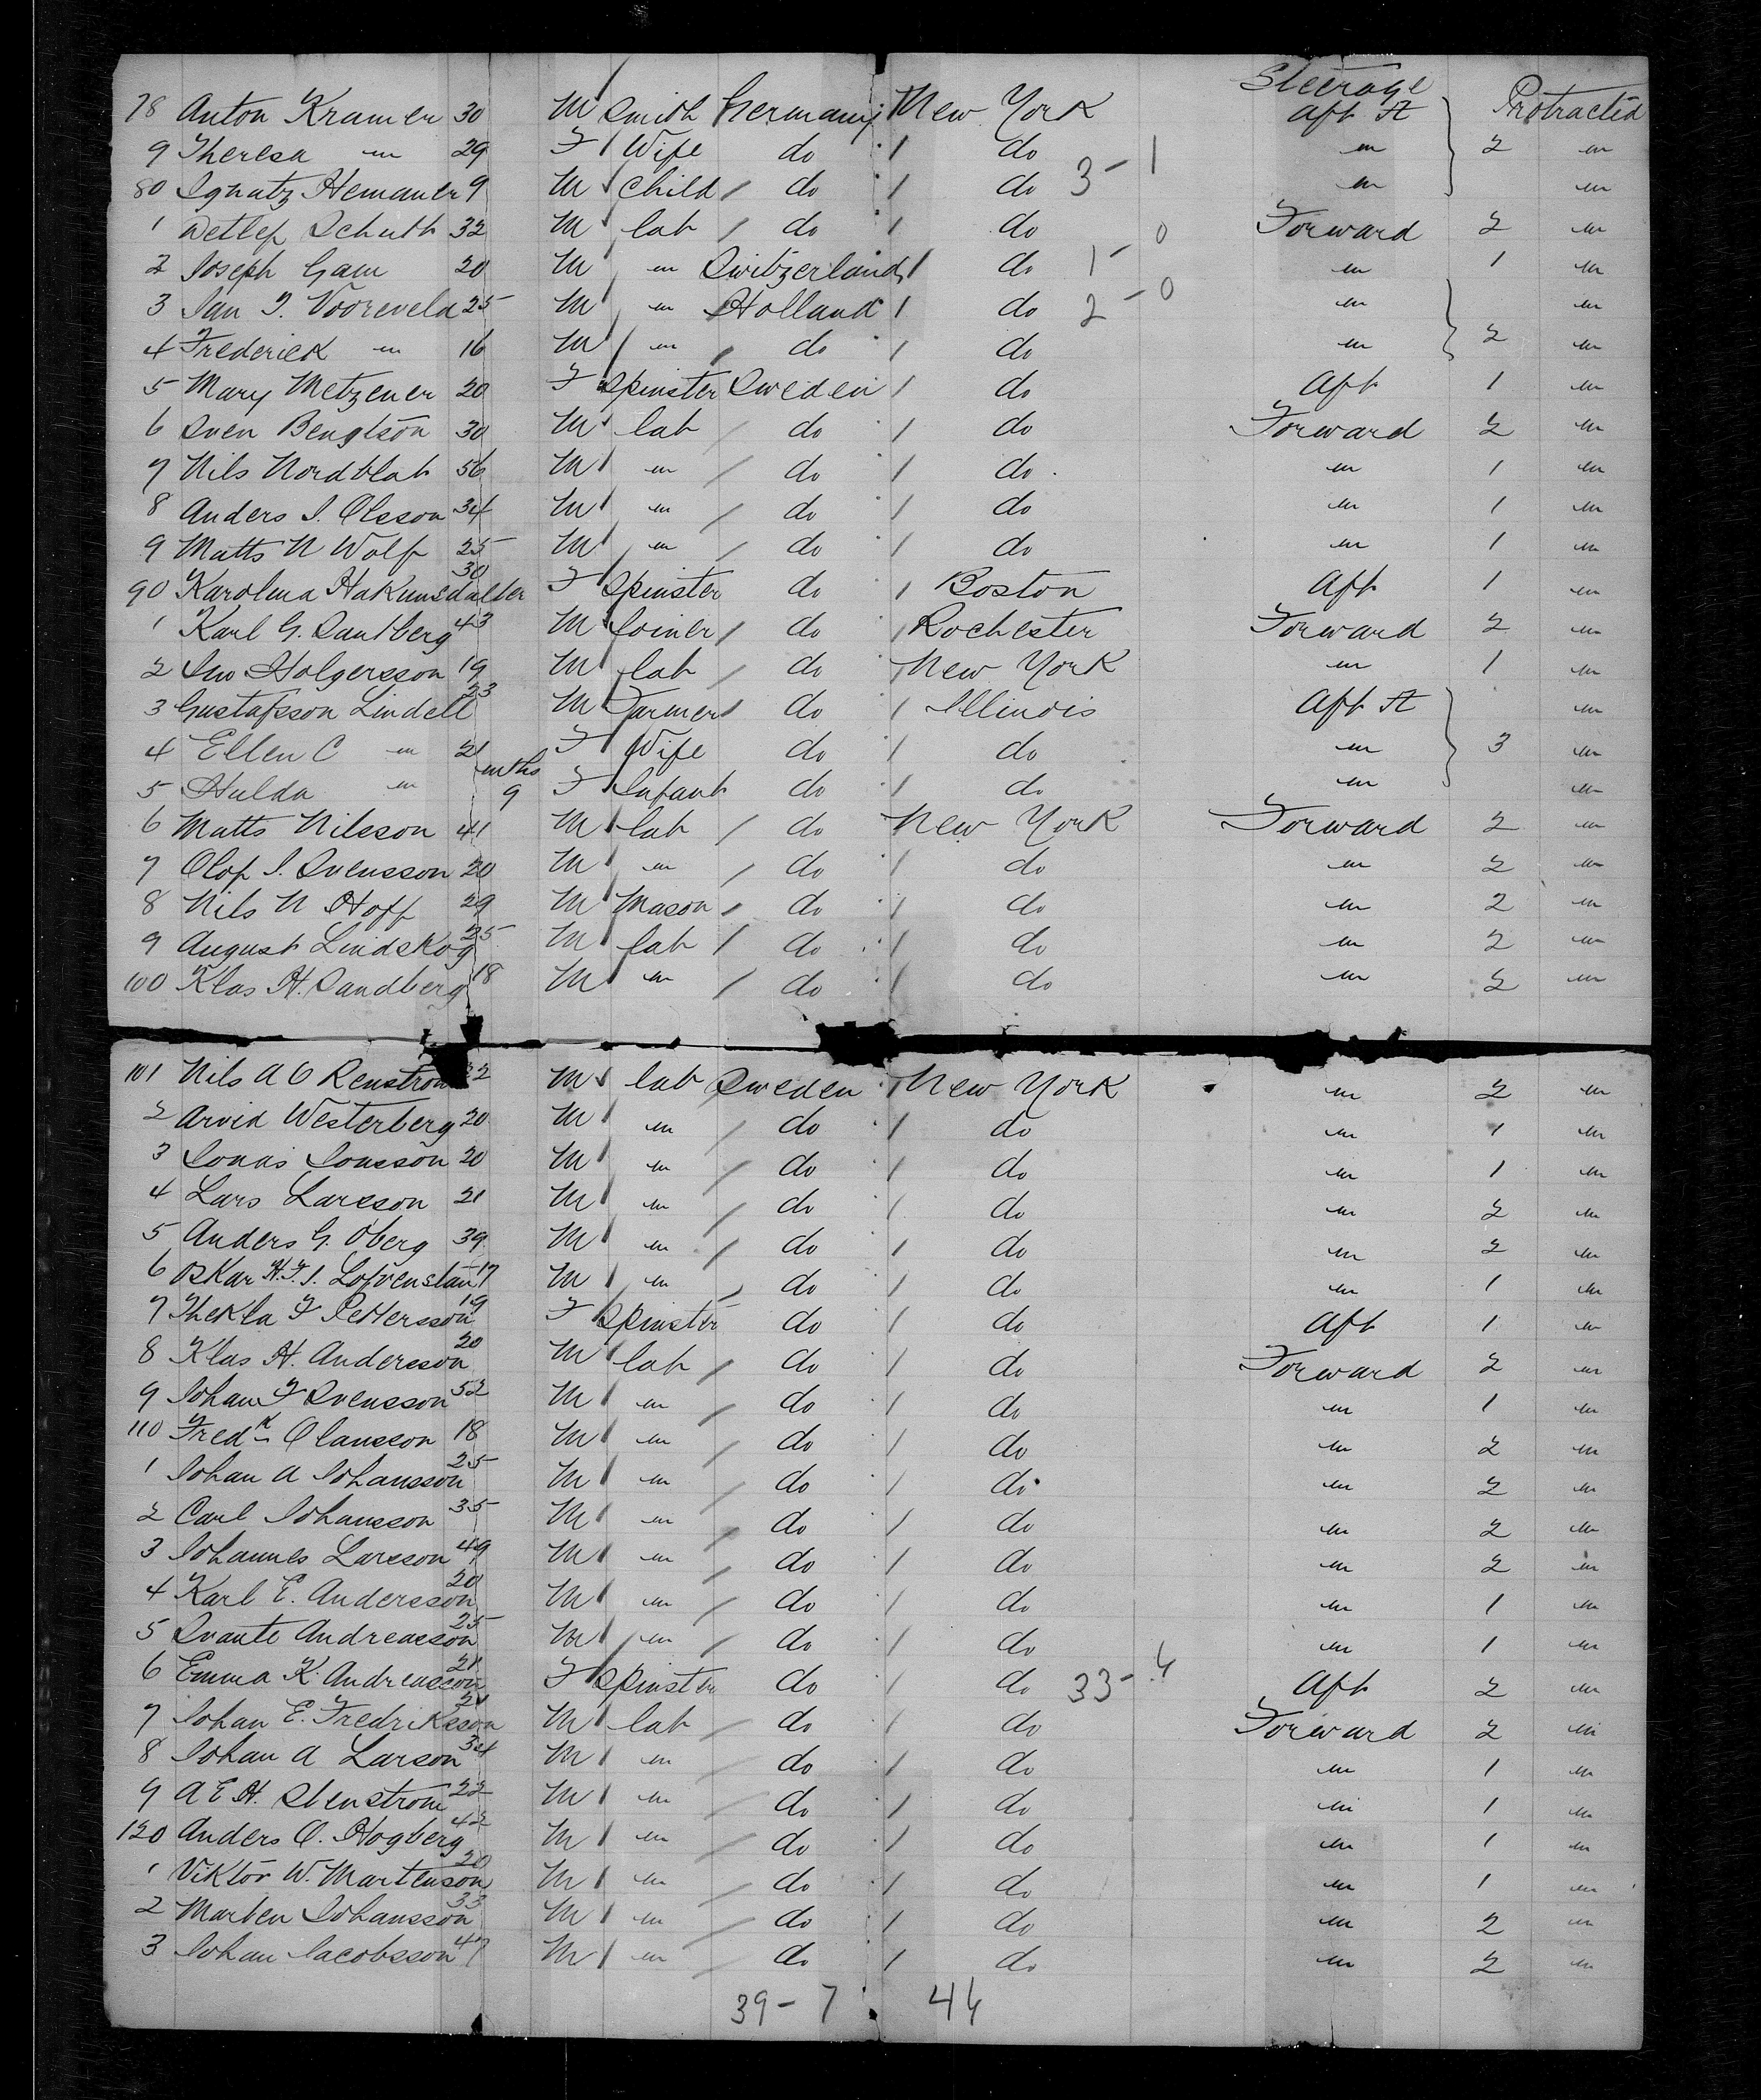 Steerage
78 Anton Kramer 30 M Smith Germany New York Aft St Protracted
9 Theresa " 29 F Wife do do " 2 "
80 Ignatz Hemauer 9 M Child do do 3-1 " "
1 Detlef Schutt 32 M lab do do 0 Forward 2 "
2 Joseph Gam 20 M " Switzerland do 1- " 1 "
3 Jan J. Vooreveld 25 M " Holland do 2-0 " "
4 Frederick " 16 M " do do " 2 "
5 Mary Metzener 20 F Spinster Sweden do Aft 1 "
6 Sven Bengtson 30 M lab do do Forward 2 "
7 Nils Nordblat 56 M " do do " 1 "
8 Anders J. Olsson 34 M " do do " 1 "
9 Matts N Wolf 25 M " do do " 1 "
90 Karolina Hakunsdalter 30 F Spinster do Boston Aft 1 "
1 Karl G. Santberg 43 M Joiner do Rochester Forward 2 "
2 Holgersson 19 M lab do New York " 1 "
3 Gustafsson Lindell 23 M Farmer do Illinois Aft St "
4 Ellen C " 21 F Wife do do " 3 "
5 Hulda " mths 9 F Infant do do " "
6 Matts Nilsson 41 M lab do New York Forward 2 "
7 Olof J. Svensson 20 M " do do " 2 "
8 Nils N Hoff 29 M Mason do do " 2 "
9 August Lindskog 25 M lab do do " 2 "
100 Klas H. Sandberg 18 M " do do " 2 "
101 Nils A O Renstrom 22 M lab Sweden New York " 2 "
2 Arvid Westerberg 20 M " do do " 1 "
3 Jonas Jonsson 20 M " do do " 1 "
4 Lars Larsson 21 M " do do " 2 "
5 Anders G. Oberg 39 M " do do " 2 "
6 Oskar H.F.J. Lofvenstan 17 M " do do " 1 "
7 Thekla F Pettersson 19 F Spinster do do Aft 1 "
8 Klas H. Andersson 20 M lab do do Forward 2 "
9 Johan F Svensson 52 M " do do " 1 "
110 Fredk Olausson 18 M " do do " 2 "
1 Johan A Johansson 25 M " do do " 2 "
2 Carl Johansson 35 M " do do " 2 "
3 Johannes Larsson 49 M " do do " 2 "
4 Karl E. Andersson 20 M " do do " 1 "
5 Svante Andreasson 25 M " do do " 1 "
6 Emma K. Andreasson 21 F Spinster do do 33-4 Aft 2 "
7 Johan E. Fredriksson 21 M lab do do Forward 2 "
8 Johan A Larson 34 M " do do " 1 "
9 A E H. Stenstrom 22 M " do do " 1 "
120 Anders O. Hogberg 42 M " do do " 1 "
1 Viktor W. Martenson 20 M " do do " 1 "
2 Marten Johansson 33 M " do do " 2 "
3 Johan Jacobsson 47 M " do do " 2 "
39-7 46